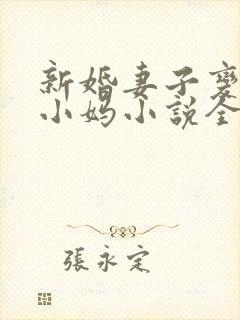 新婚妻子變
小媽小說全
張永定